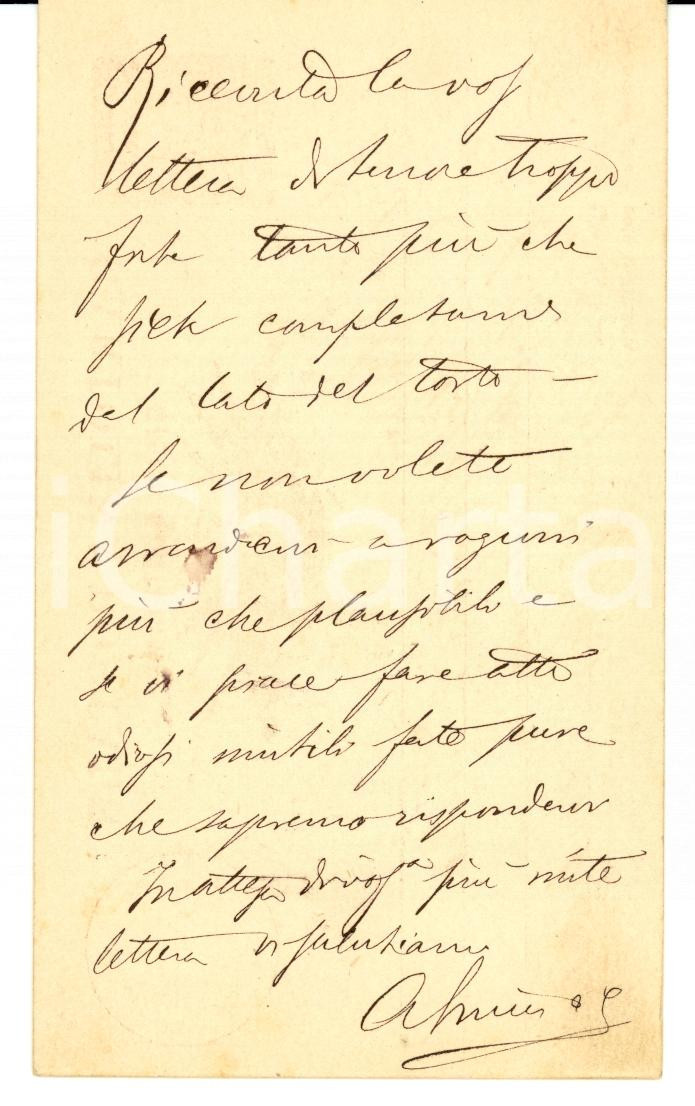 Ricevuta la vos
lettera di tenore troppo
forte tanto più che
siete completame
dal lato del torto –
Se non volete
arrendervi a ragioni
più che plausibili e
se vi piace fare atti
odiosi inutili fate pure
che sapremo rispondervi
In attesa di vosª più mite
lettera vi salutiamo
iCharta